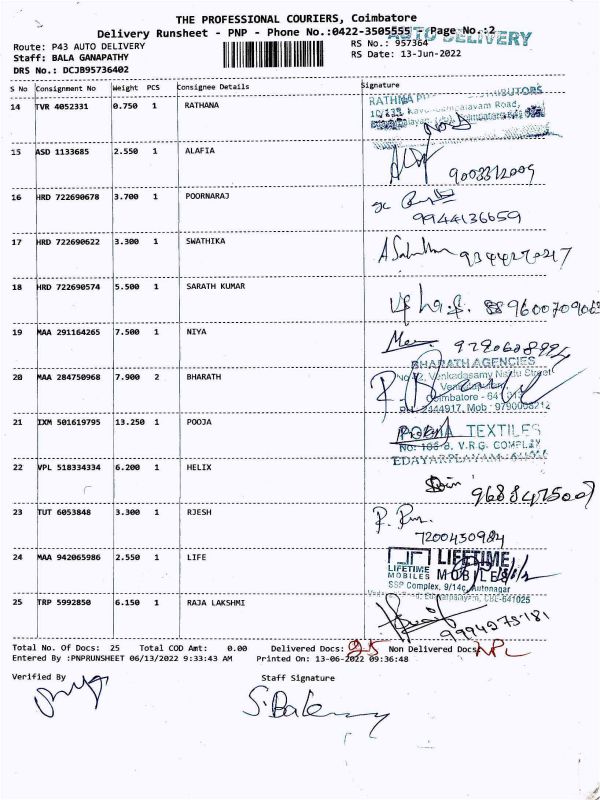 THE PROFESSIONAL COURIERS, Coimbatore
Delivery Runsheet - PNP - Phone No.:0422-3505555 Page No.:2
AUTO DELIVERY
Route: P43 AUTO DELIVERY RS No.: 957364
Staff: BALA GANAPATHY RS Date: 13-Jun-2022
DRS No.: DCJB95736402
S No Consignment No Weight PCS Consignee Details Signature
14 TVR 4052331 0.750 1 RATHANA
15 ASD 1133685 2.550 1 ALAFIA
16 HRD 722690678 3.700 1 POORNARAJ
9944136659
17 HRD 722690622 3.300 1 SWATHIKA
18 HRD 722690574 5.500 1 SARATH KUMAR
19 MAA 291164265 7.500 1 NIYA
BHARATH AGENCIES
20 MAA 284750968 7.900 2 BHARATH
21 IXM 501619795 13.250 1 POOJA
TEXTILES
V.R.G. COMPLEX
22 VPL 518334334 6.200 1 HELIX
9688475007
23 TUT 6053848 3.300 1 RJESH
7200430984
24 MAA 942065986 2.550 1 LIFE
LIFETIME
LIFETIME MOBILES MOBILES
SSP Complex, 9/14c, Autonagar
25 TRP 5992850 6.150 1 RAJA LAKSHMI
9994275181
Total No. Of Docs: 25 Total COD Amt: 0.00 Delivered Docs: 25 Non Delivered Docs: NPL
Entered By :PNPRUNSHEET 06/13/2022 9:33:43 AM Printed On: 13-06-2022 09:36:48
Verified By Staff Signature